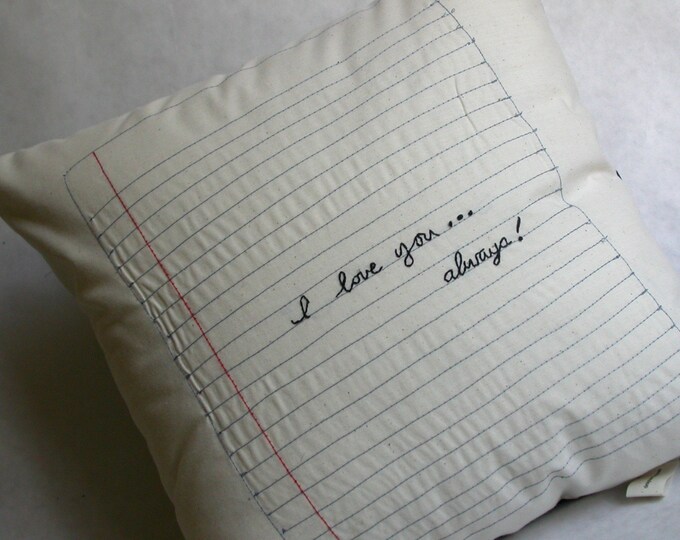 I love you...
always!